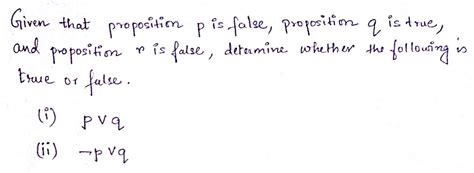 Given that proposition p is false, proposition q is true,
and proposition r is false, determine whether the following is
true or false.
(i) p ∨ q
(ii) ¬p ∨ q